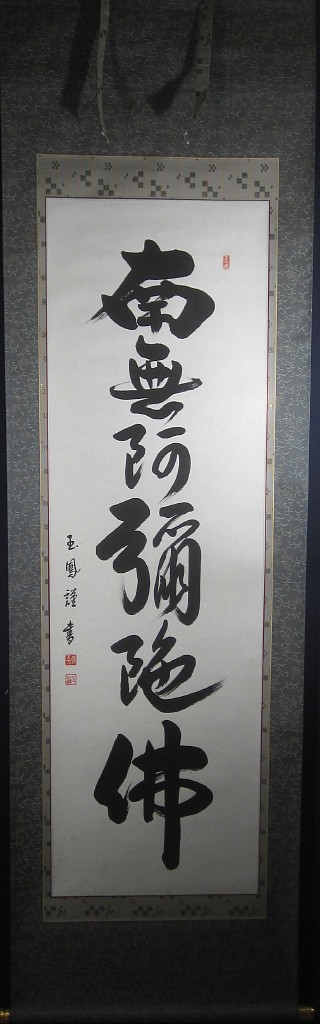 南無阿彌陀佛
玉鳳謹書